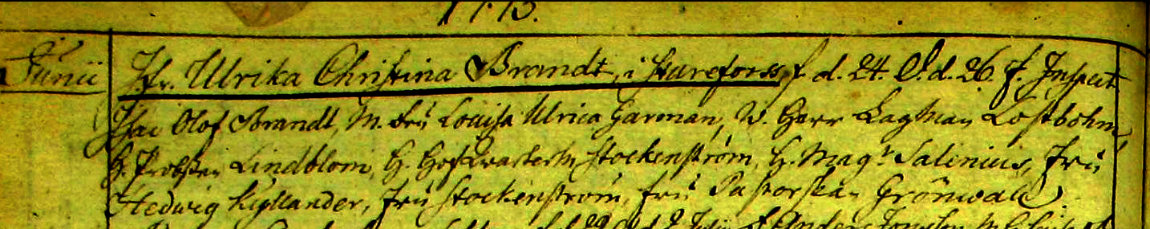 Junii
Jfr. Ulrika Christina Brandt, i Stureforss, f. d. 24. D. d. 26. f. Inspect
Olof Brandt, M. Fru Lovisa Ulrica Garman, W. Herr Lagman Lostbohm,
H. Probsten Lindblom, H. Hofqvarterm Stockenström, H. Magr Salinius, Fru
Hedwig Kyllander, Fru Stockenström, Fru Pastorskan Grönwall